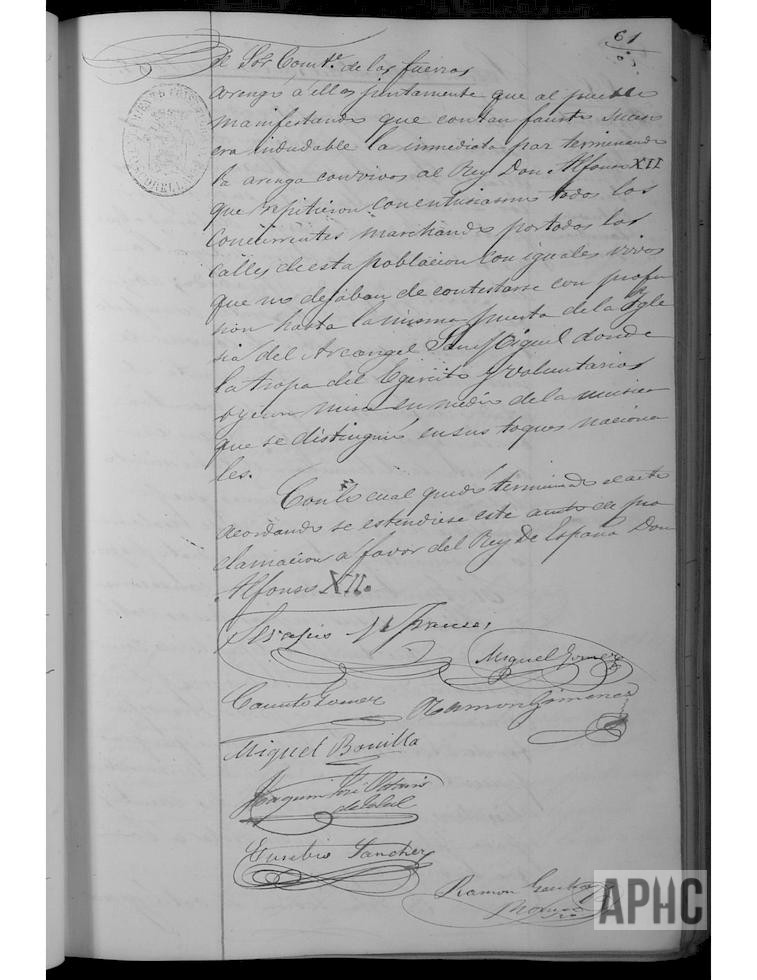 61
El Sor Comte de las fuerzas
arengó a ellos juntamente que al pueblo
manifestando que con tan fausto suceso
era indudable la inmediata paz terminando
la arenga con vivas al Rey Don Alfonso XII
que repitieron con entusiasmo todos los
concurrentes marchando por todas las
calles de esta poblacion con iguales vivas
que no dejaban de contestarse con profu
sion hasta la misma puerta de la Ygle
sia del Arcangel San Miguel donde
la tropa del Egercito y voluntarios
oyeron misa en medio de la musica
que se distinguió en sus toques naciona
les.
Con lo cual quedó terminado el acto
acordando se estendiese este auto de pro
clamacion a favor del Rey de España Don
Alfonso XII.
Miguel Gomez
Canuto Gomez
Ramon Gimenez
Miguel Bonilla
Joaquin José
Eusebio Sanchez
Ramon
APHC